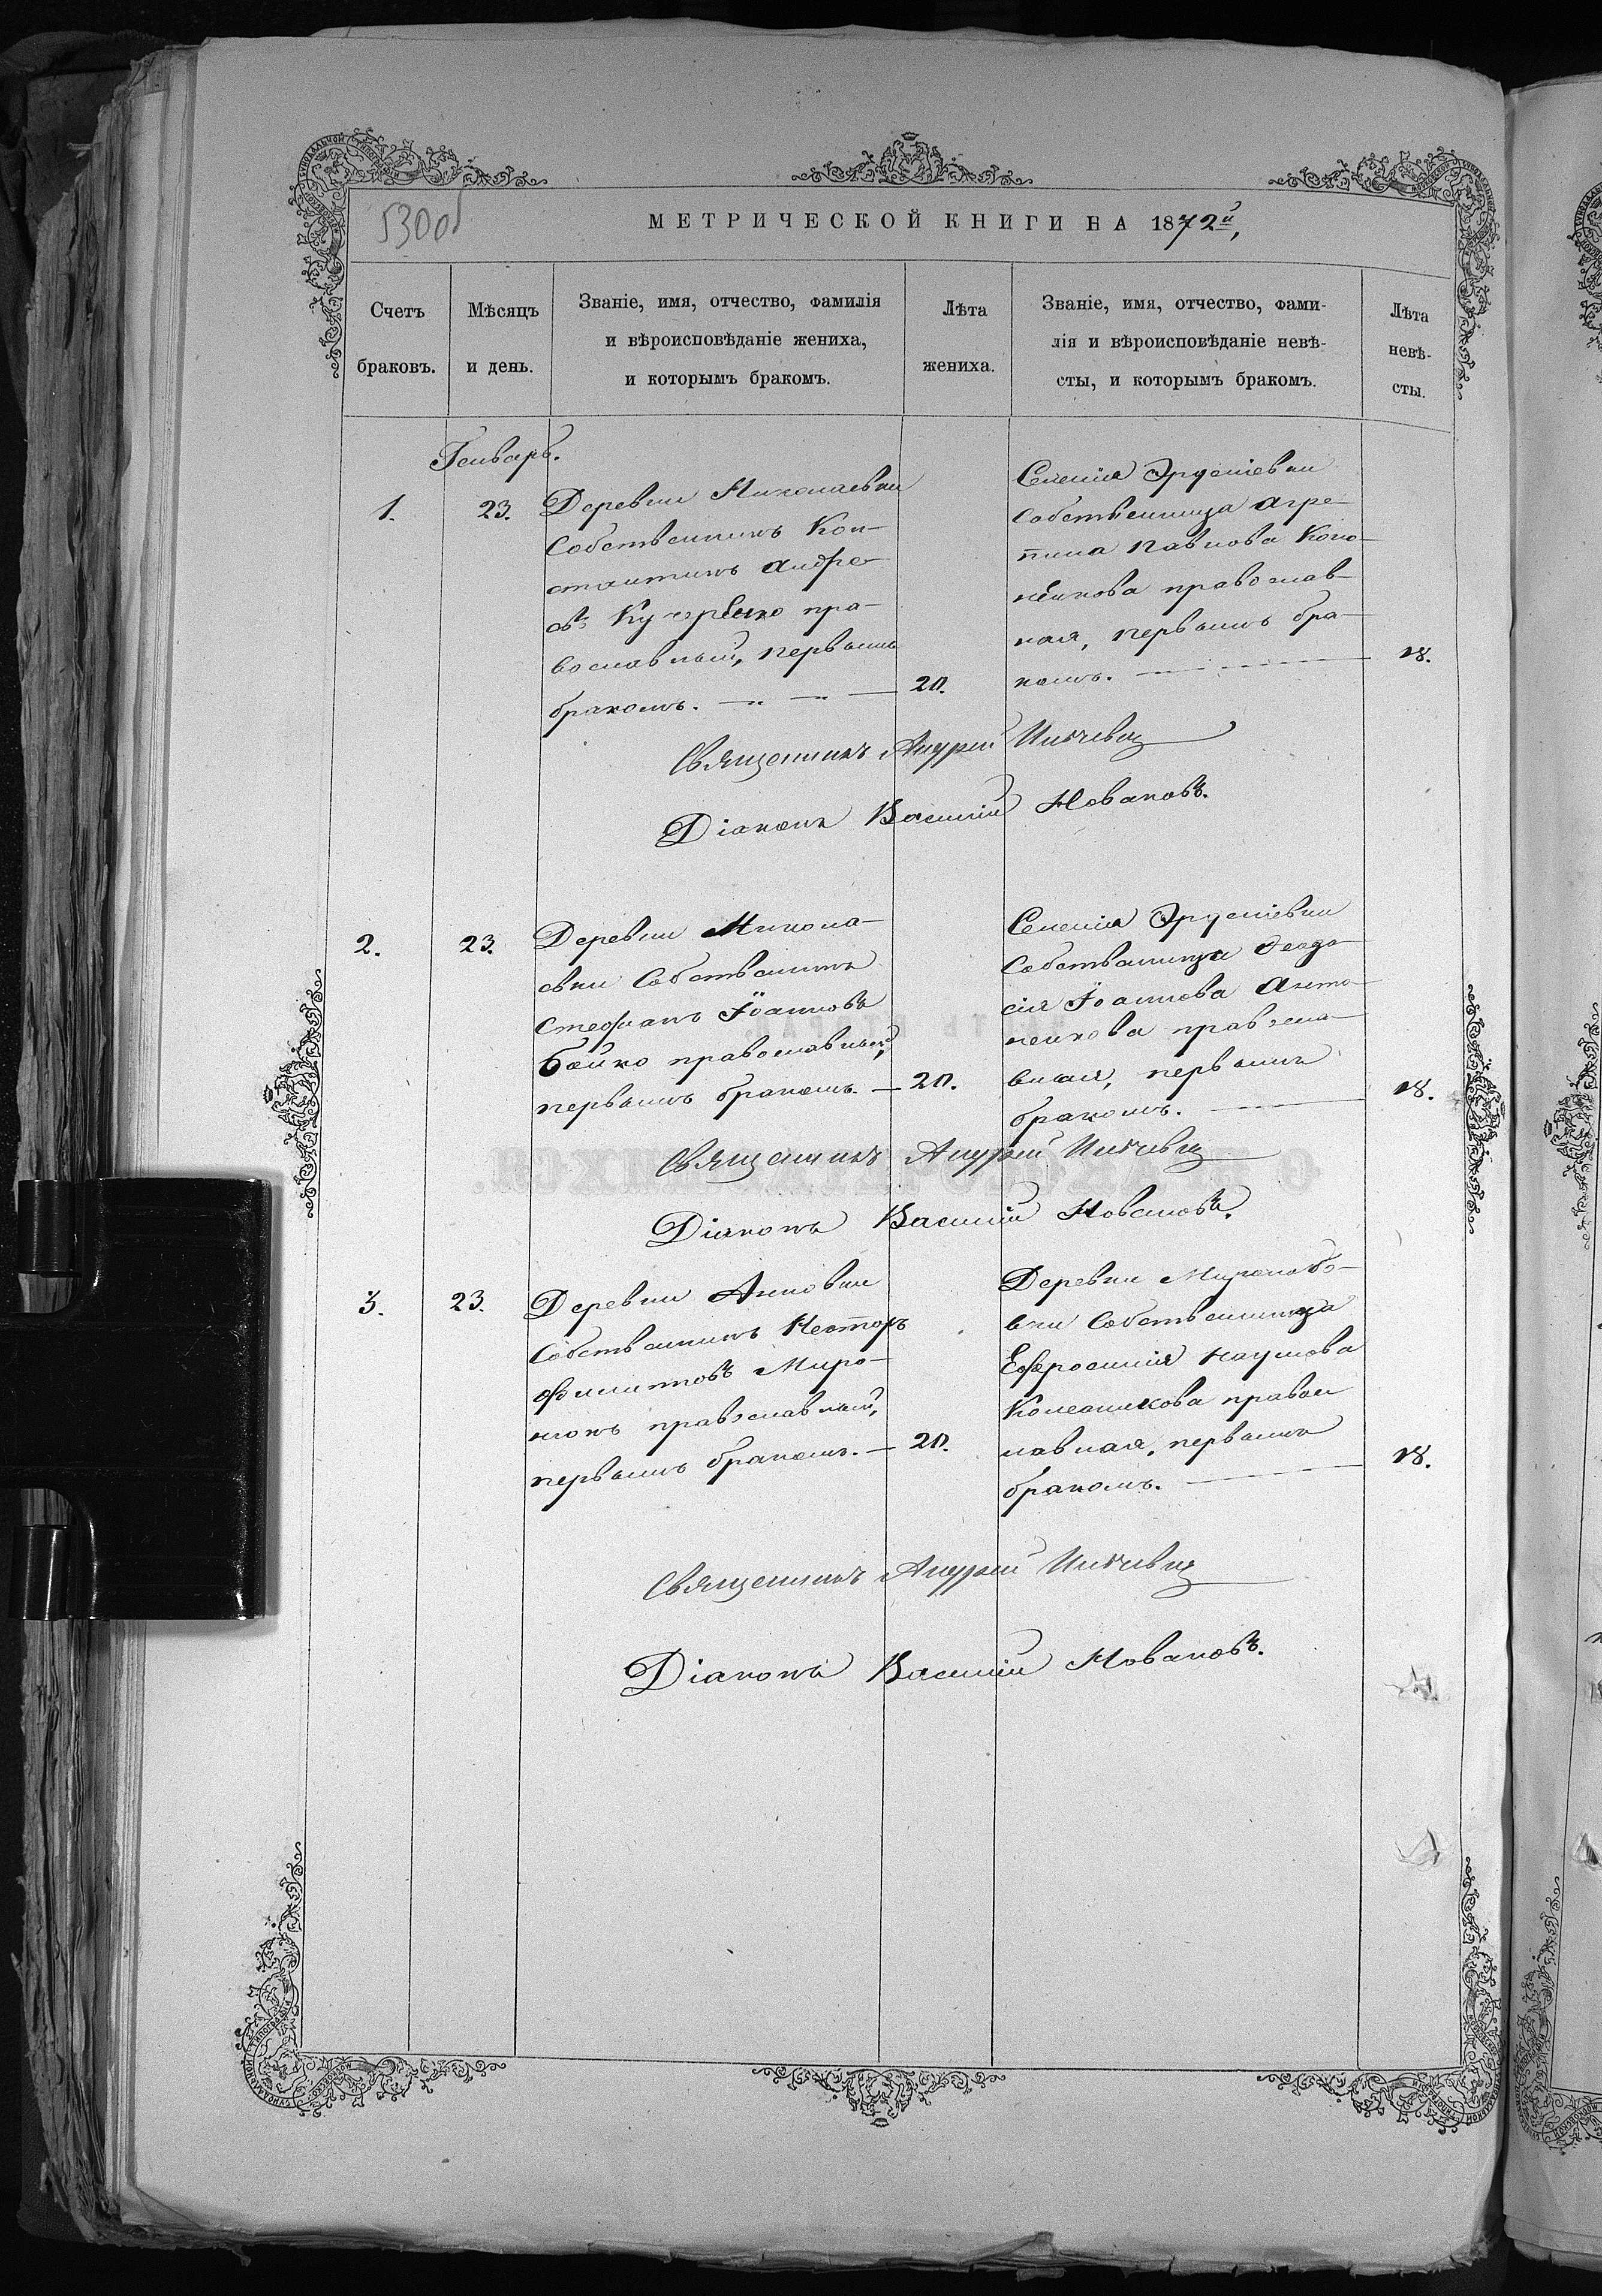 МЕТРИЧЕСКОЙ КНИГИ НА 1872й,
Счетъ браковъ.
Мѣсяцъ и день.
Званіе, имя, отчество, фамилія
и вѣроисповѣданіе жениха,
и которымъ бракомъ.
Лѣта жениха.
Званіе, имя, отчество, фами-
лія и вѣроисповѣданіе невѣ-
сты, и которымъ бракомъ.
Лѣта невѣ-
сты.
Генварь.
1.
23.
Деревни Николаевки
Собственникъ Кон-
стантинъ Андре-
евъ пра-
вославный, первымъ
бракомъ.
20.
Селенія
Собственница Агре-
пина Павлова
православ-
ная, первымъ бра-
комъ.
18.
Священникъ Андрей
Діаконъ Василій Новаковъ.
2.
23.
Деревни Никола-
евки Собственникъ
Стефанъ Іоанновъ
Бойко православный,
первымъ бракомъ.
20.
Селенія
Собственница Феодо-
сія Іоаннова Анто-
ненкова правосла-
вная, первымъ
бракомъ.
18.
Священникъ Андрей
Діаконъ Василій Новаковъ.
3.
23.
Деревни Анновки
Собственникъ Несторъ
Филипповъ Миро-
нюкъ православный,
первымъ бракомъ.
20.
Деревни
вки Собственница
Ефросинія Наумова
Колесникова правос
лавная, первымъ
бракомъ.
18.
Священникъ Андрей
Діаконъ Василій Новаковъ.